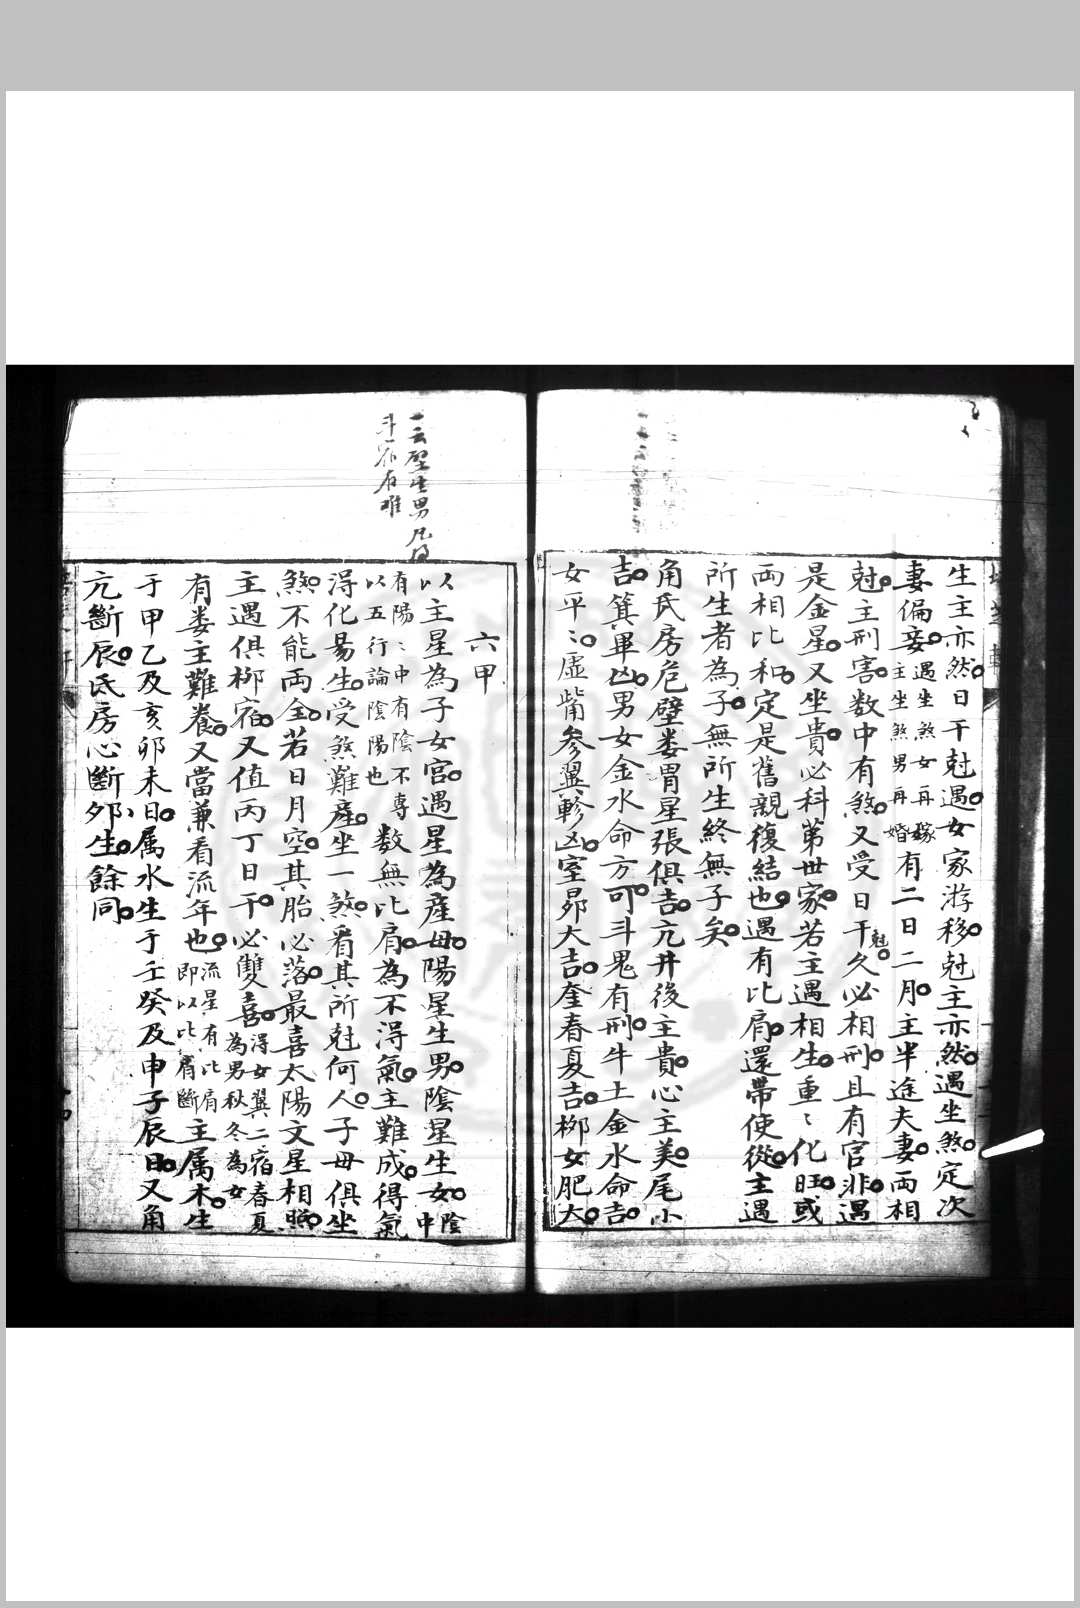 生主亦然日干尅遇女家游移尅主亦然遇坐煞定次
妻偏妾遇坐煞女再嫁主坐煞男再婚有二日二月主半途夫妻両相
尅主刑害数中有煞又受日干尅久必相刑且有官非遇
是金星又坐貴必科第世家若主遇相生重〻化旺或
両相比和定是舊親復結也遇有比肩還帶使從主遇
所生者為子無所生終無子矣
角氐房危壁婁胃星張俱吉亢井後主貴心主美尾小
吉箕畢凶男女金水命方可斗鬼有刑牛土金水命吉
女平〻虛觜參翼軫凶室昴大吉奎春夏吉柳女肥大
一云壁生男
斗宿有難
六甲
以主星為子女宮遇星為産母陽星生男陰星生女陰中
有陽〻中有陰不專以五行論陰陽也数無比肩為不得氣主難成得氣
得化易生受煞難産坐一煞看其所尅何人子母俱坐
煞不能両全若日月空其胎必落最喜太陽文星相照
主遇俱柳宿又值丙丁日干必雙喜得女翼二宿春夏為男秋冬為女
有婁主難養又當兼看流年也流星有比肩即以比肩斷主属木生
于甲乙及亥卯未日属水生于壬癸及申子辰日又角
亢斷辰氐房心斷夘生餘同